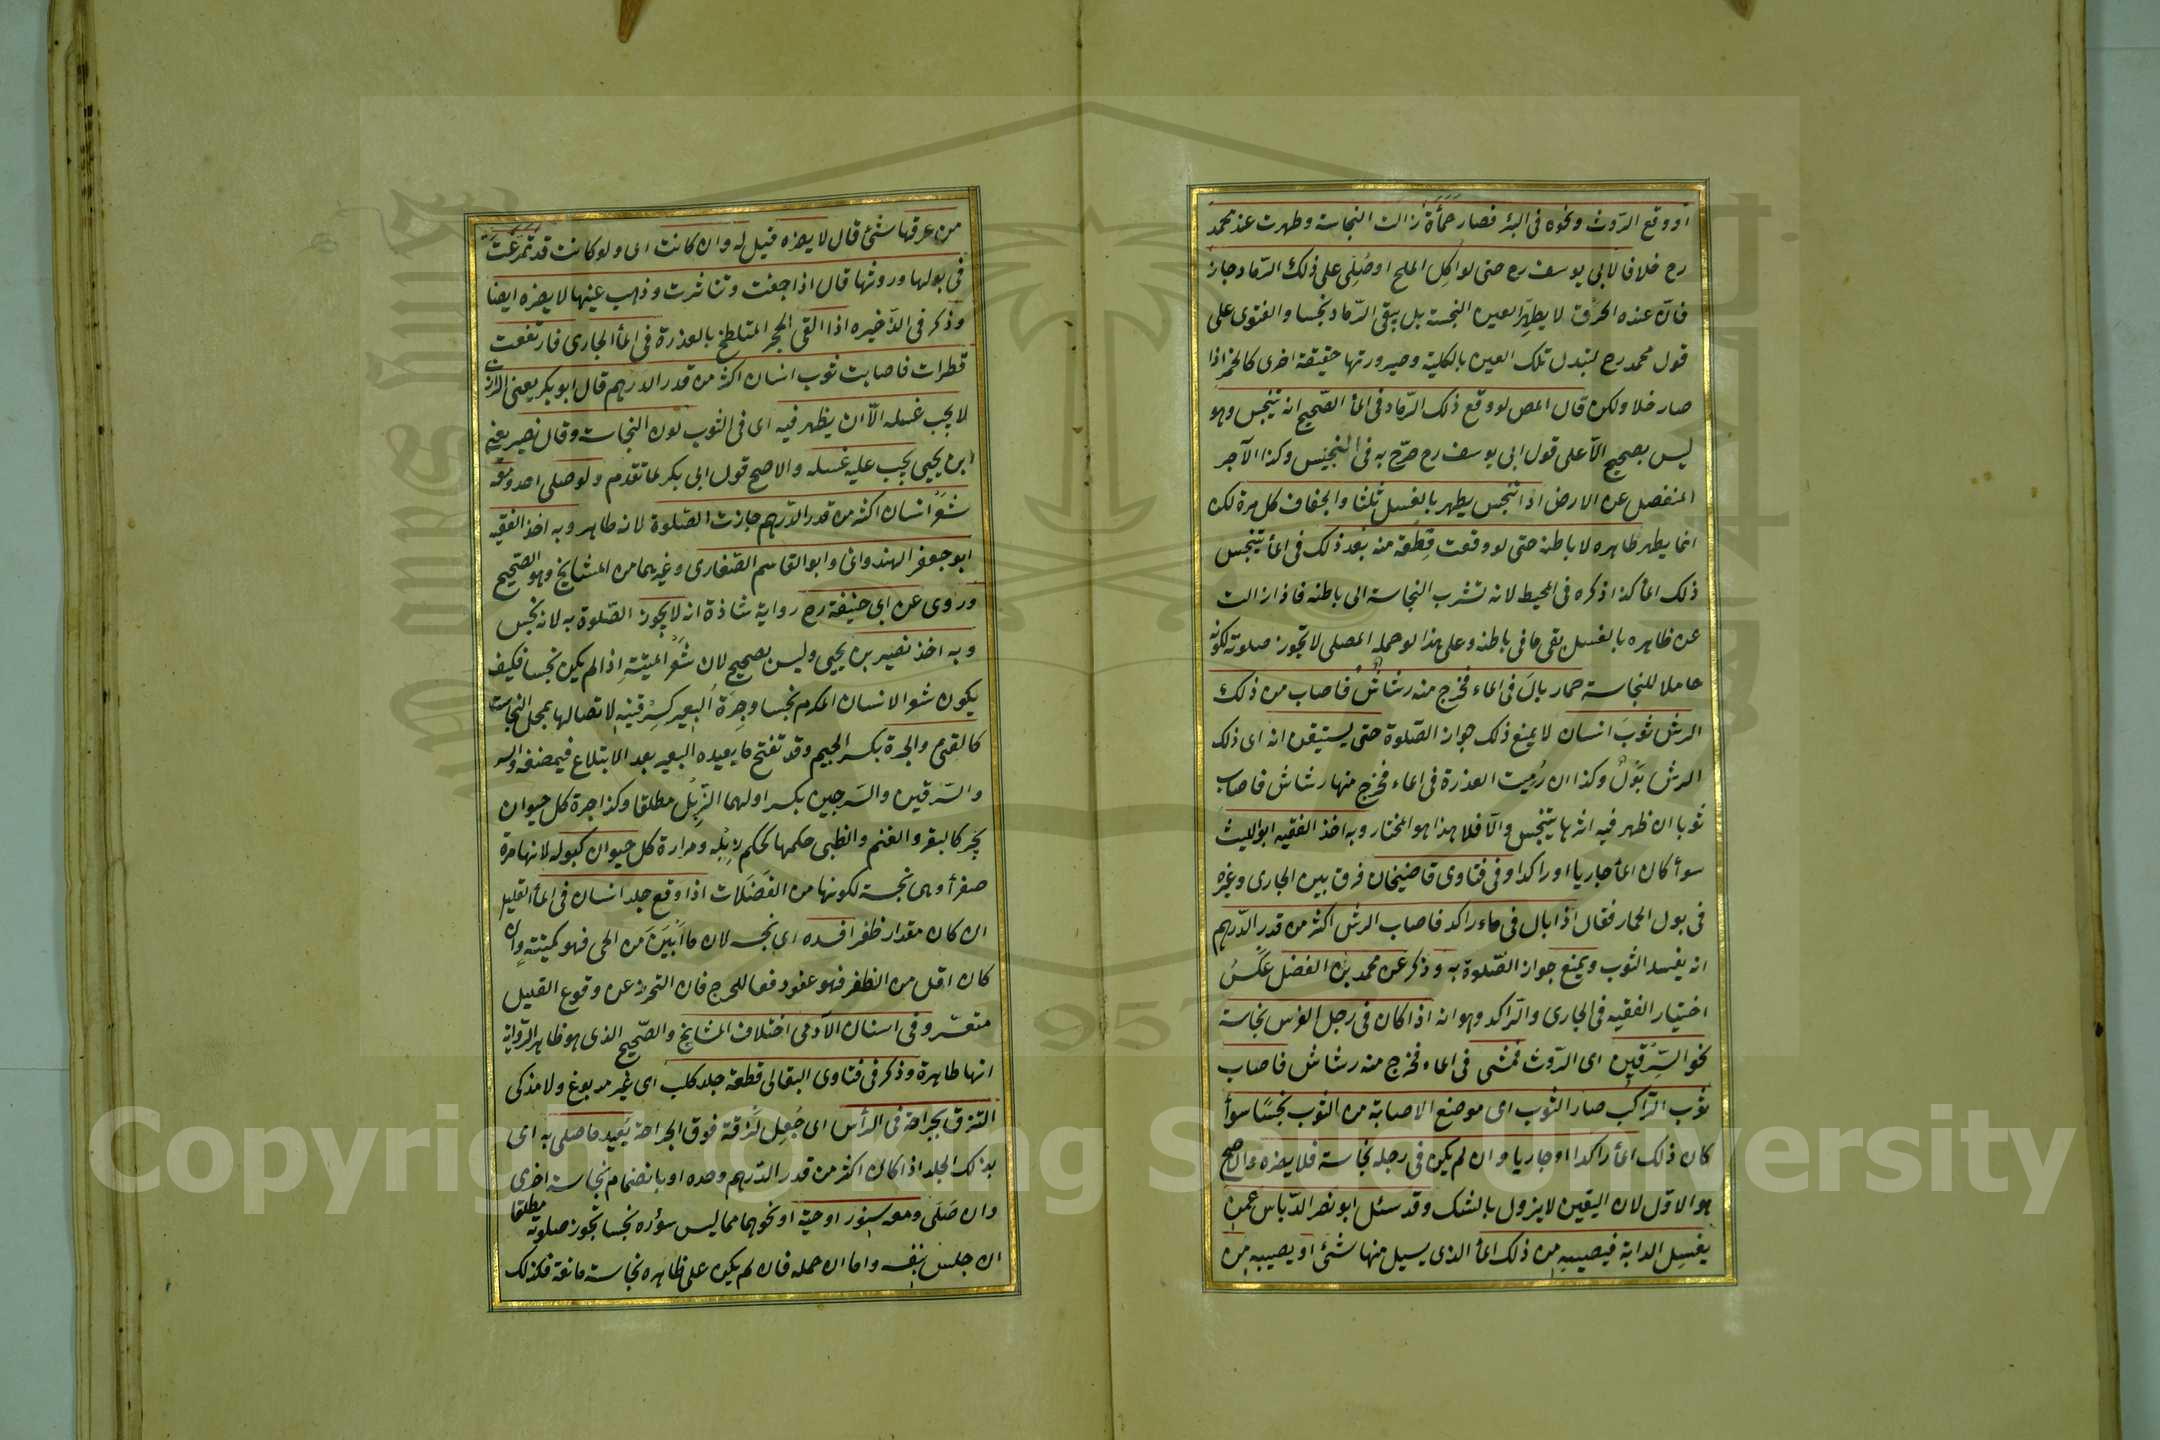 او وقع الروث ونحوه فى البئر فصار حمأة زالت النجاسة وطهرت عند محمد
رح خلافا لابى يوسف رح حتى لو اكل الملح او صلى على ذلك الرماد جاز
فان عنده الحرق لا يطهر العين النجسة بل يبقى الرماد نجسا والفتوى على
قول محمد رح لتبدل تلك العين بالكلية وصيرورتها حقيقة اخرى كالخمر اذا
صار خلا ولكن قال المص لو وقع ذلك الرماد فى الماء الصحيح انه يتنجس وهو
ليس بصحيح الا على قول ابى يوسف رح صرح به فى التجنيس وكذا الآجر
المنفصل عن الارض اذا تنجس يطهر بالغسل ثلثا والجفاف كل مرة لكن
انما يطهر ظاهره لا باطنه حتى لو وقعت قطعة منه بعد ذلك فى الماء يتنجس
ذلك الماء كذا ذكره فى المحيط لانه تشرب النجاسة الى باطنه فاذا زالت
عن ظاهره بالغسل بقى ما فى باطنه وعلى هذا لو حمله المصلى لا تجوز صلوته لكونه
حاملا للنجاسة حمار بال فى الماء فخرج منه رشاش فاصاب من ذلك
الرش ثوب انسان لا يمنع ذلك جواز الصلوة حتى يستيقن انه اى ذلك
الرش بول وكذا ان رميت العذرة فى الماء فخرج منها رشاش فاصاب
ثوبا ان ظهر فيه اثرها يتنجس والا فلا هذا هو المختار وبه اخذ الفقيه ابو الليث
سوأ كان الماء جاريا او راكدا وفى فتاوى قاضيخان فرق بين الجارى وغيره
فى بول الحمار فقال اذا بال فى ماء راكد فاصاب الرش اكثر من قدر الدرهم
انه يفسد الثوب ويمنع جواز الصلوة به وذكر عن محمد بن الفضل عكس
اختيار الفقيه فى الجارى والراكد وهو انه اذا كان فى رجل الفرس نجاسة
نحو السرقين اى الروث فمشى فى الماء فخرج منه رشاش فاصاب
ثوب الراكب صار الثوب اى موضع الاصابة من الثوب نجسا سوأ
كان ذلك الماء راكدا او جاريا وان لم يكن فى رجله نجاسة فلا يضره والاصح
هو الاول لان اليقين لا يزول بالشك وقد سئل ابو نصر الدباس عمن
يغسل الدابة فيصيبه من ذلك الماء الذى يسيل منها شئ او يصيبه من
من عرقها شئ قال لا يضره قيل له وان كانت اى ولو كانت قد تمرغت
فى بولها وروثها قال اذا جفت وتناثرت وذهب عينها لا يضره ايضا
وذكر فى الذخيره اذا القى الحجر المتلطخ بالعذرة فى الماء الجارى فارتفعت
قطرات فاصابت ثوب انسان اكثر من قدر الدرهم قال ابو بكر يعنى
لا يجب غسله الا ان يظهر فيه اى فى الثوب لون النجاسة وقال نصير يعنى
ابن يحيى يجب عليه غسله والاصح قول ابى بكر لما تقدم ولو صلى احد ومعه
شعر انسان اكثر من قدر الدرهم جازت الصلوة لانه طاهر وبه اخذ الفقيه
ابو جعفر الهندوانى وابو القاسم الصفارى وغيرهما من المشايخ وهو الصحيح
وروى عن ابى حنيفة رح رواية شاذة انه لا يجوز الصلوة به لانه نجس
وبه اخذ نصير بن يحيى وليس بصحيح لان شعر الميتة اذا لم يكن نجسا فكيف
يكون شعر الانسان المكرم نجسا وجرة البعير كسرقينه لاتصالها بمحل النجاسة
كالقئ والجرة بكسر الجيم وقد تفتح ما يعيده البعير بعد الابتلاع فيمضغه
والسرقين والسرجين بكسر اولهما الزبل مطلقا وكذا جرة كل حيوان
يجر كالبقر والغنم والظبى حكمها كحكم زبله ومرارة كل حيوان كبوله لانها مرة
صفرأ وهى نجسة لكونها من الفضلات اذا وقع جلد انسان فى الماء القليل
ان كان مقدار ظفر افسده اى نجسه لان ما ابين من الحى فهو كميتته وان
كان اقل من الظفر فهو عفو دفعا للحرج فان التحرز عن وقوع القليل
متعسر وفى اسنان الآدمى اختلاف المشايخ والصحيح الذى هو ظاهر الرواية
انها طاهرة وذكر فى فتاوى البقالى قطعة جلد كلب اى غير مدبوغ ولا مذكى
التزق بجراحة فى الرأس اى جعل لزقة فوق الجراحة يعيد ما صلى به اى
بذلك الجلد اذا كان اكثر من قدر الدرهم وحده او بانضمام نجاسة اخرى
وان صلى ومعه سنور او حية او نحوهما مما ليس سؤره نجسا تجوز صلوته مطلقا
ان جلس بنفسه واما ان حمله فان لم يكن على ظاهره نجاسة مانعة فكذلك
Copyright © King Saud University